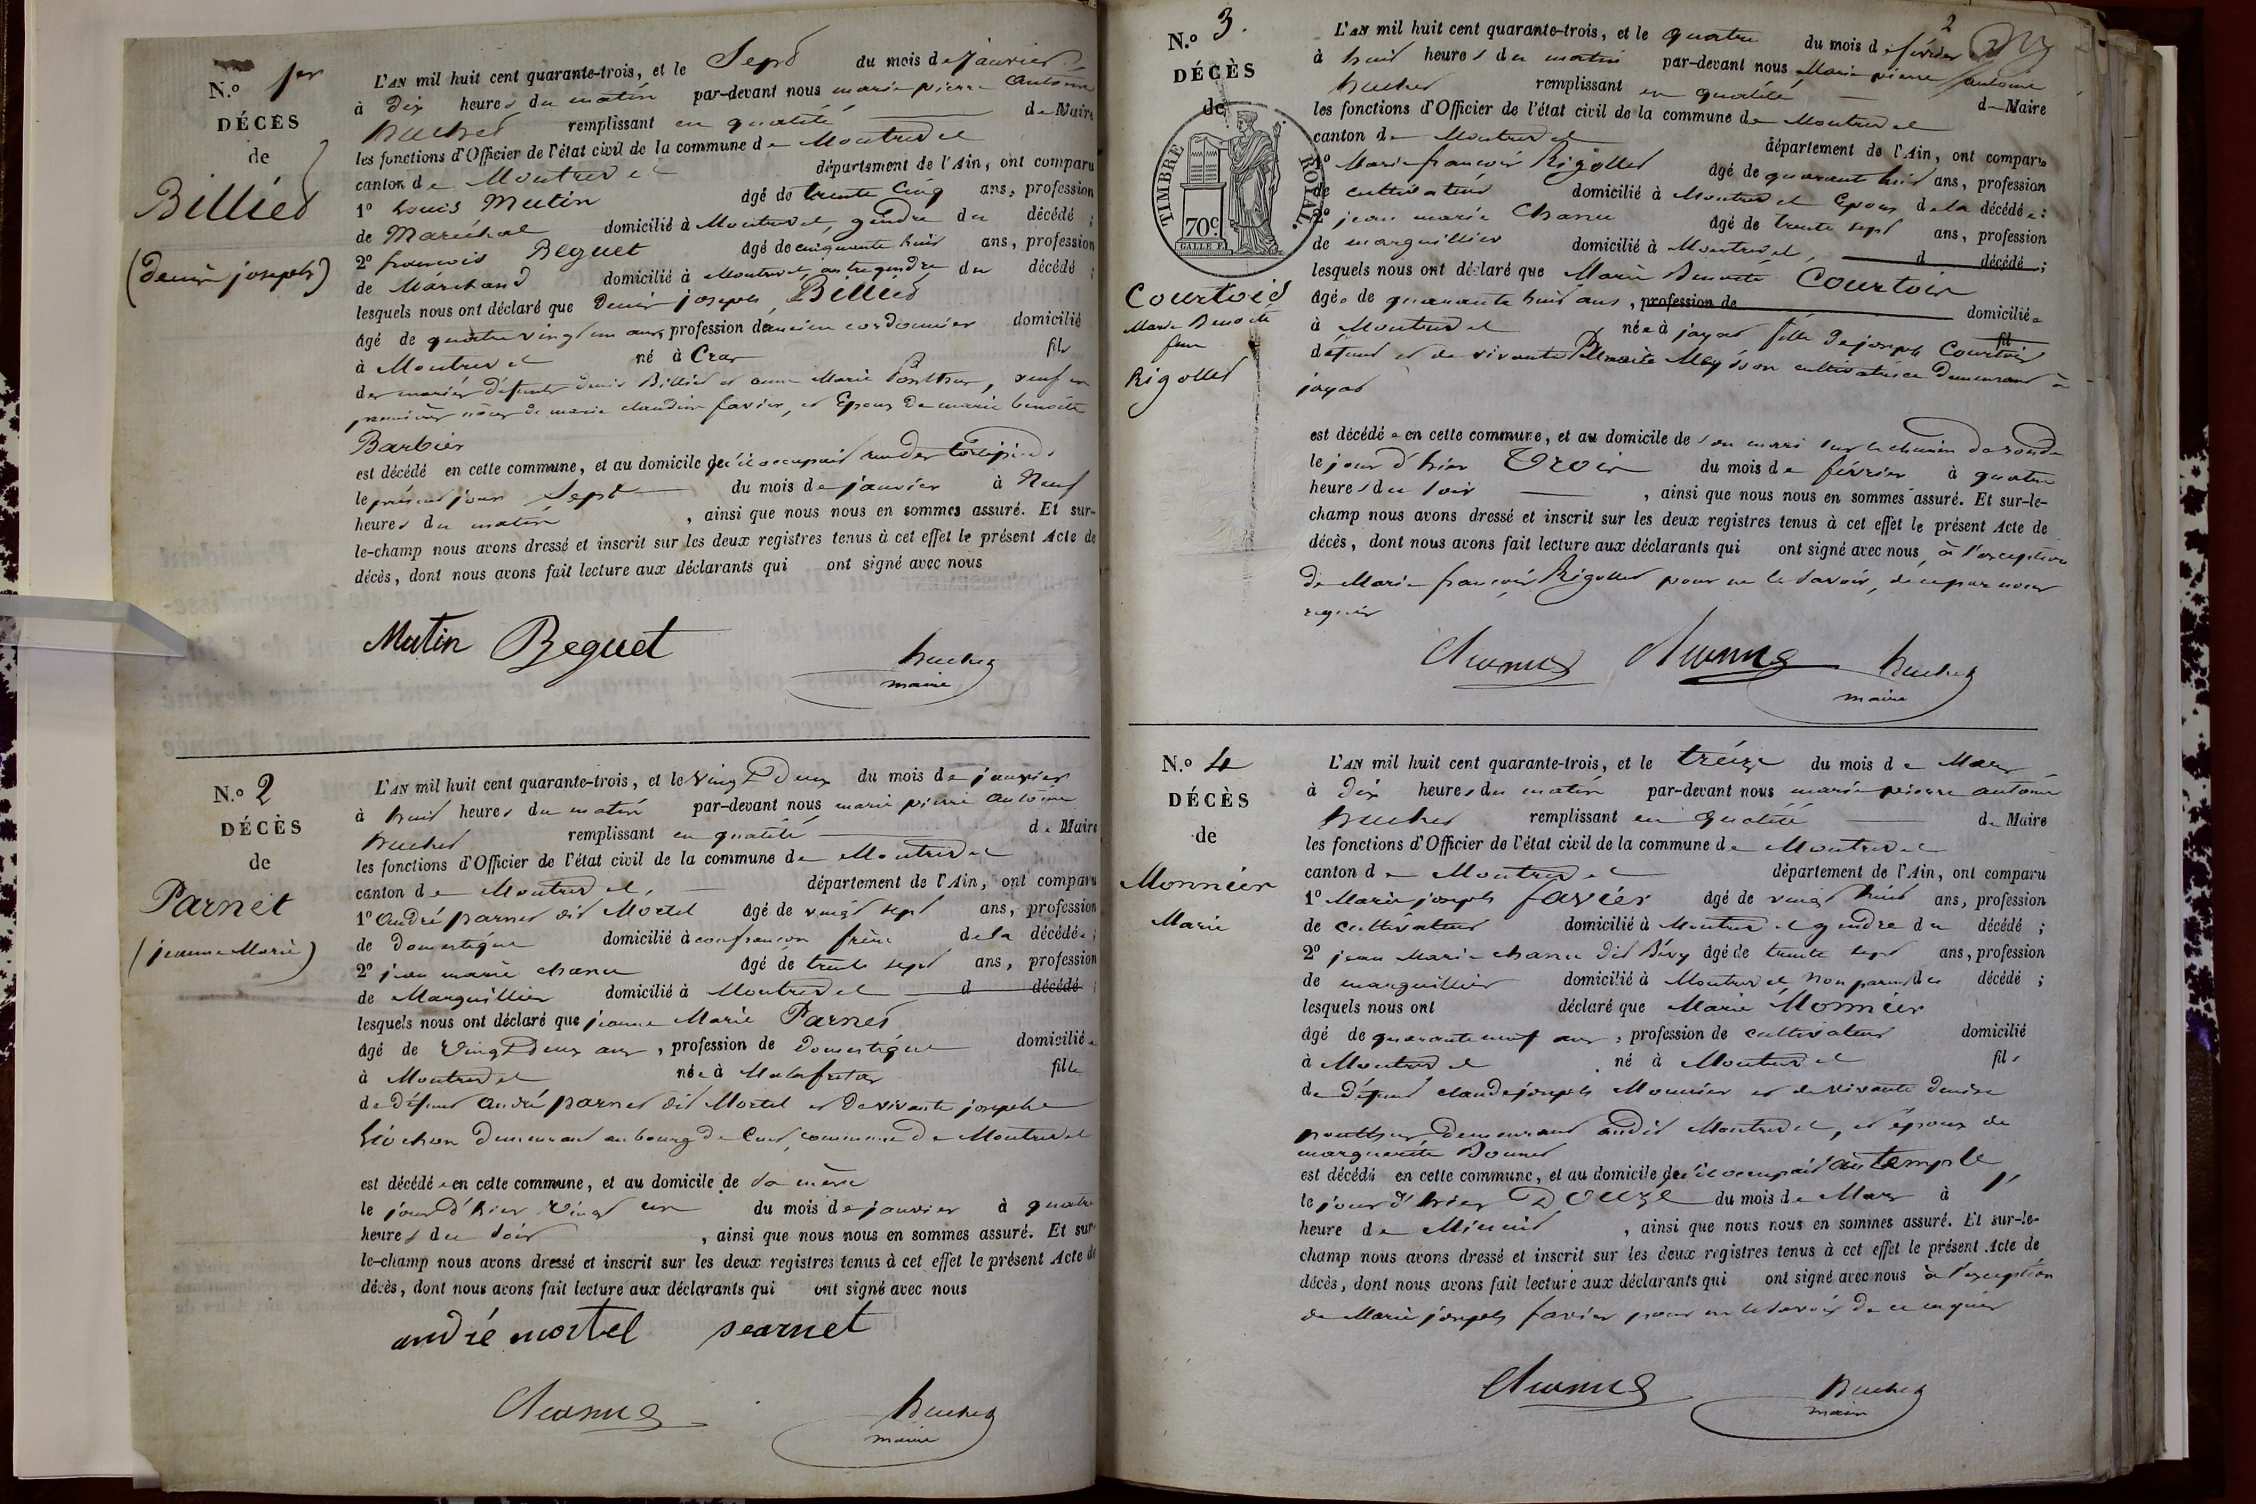 N.º 1er
DÉCÈS
de
Billiet
(denis joseph)
L'AN mil huit cent quarante-trois, et le Sept du mois de janvier
à dix heures du matin par-devant nous marie pierre antoine
huchet remplissant en qualité de Maire
les fonctions d'Officier de l'état civil de la commune de Montrevel
canton de Montrevel département de l'Ain, ont comparu
1º Louis Mutin âgé de trente cinq ans, profession
de Maréchal domicilié à Montrevel, gendre du décédé ;
2º francois Beguet âgé de cinquante huit ans, profession
de Marchand domicilié à Montrevel, autre gendre du décédé ;
lesquels nous ont déclaré que Denis joseph Billied
âgé de quatre vingt un ans, profession d'ancien cordonnier domicilié
à Montrevel né à Cras fils
des mariés défunts denis Billiet et anne Marie Ponthus, veuf en
premières nôces de marie claudine favier, et Epoux de marie benoite
Barbier
est décédé en cette commune, et au domicile qu'il occupait rue des
le présent jour Sept du mois de janvier à Neuf
heures du matin , ainsi que nous nous en sommes assuré. Et sur-
le-champ nous avons dressé et inscrit sur les deux registres tenus à cet effet le présent Acte de
décès, dont nous avons fait lecture aux déclarants qui ont signé avec nous
Mutin Beguet huchet
maire
N.º 2
DÉCÈS
de
Parnet
(jeanne Marie)
L'AN mil huit cent quarante-trois, et le vingt Deux du mois de janvier
à huit heures du matin par-devant nous marie pierre antoine
huchet remplissant en qualité de Maire
les fonctions d'Officier de l'état civil de la commune de Montrevel
canton de Montrevel, département de l'Ain, ont comparu
1º André parnet dit Mortel âgé de vingt sept ans, profession
de domestique domicilié à confrancon frère de la décédée ;
2º jean marie chanu âgé de trente sept ans, profession
de Marguillier domicilié à Montrevel d décédé ;
lesquels nous ont déclaré que jeanne Marie Parnet
âgé de Vingt Deux ans, profession de Domestique domiciliée
à Montrevel née à Malafretaz fille
de défunt André parnet dit Mortel et de vivante josephe
bréchon demeurant au bourg de Cuet, commune de Montrevel
est décédée en cette commune, et au domicile de sa mère
le jour d'hier vingt un du mois de janvier à quatre
heures du soir , ainsi que nous nous en sommes assuré. Et sur
le-champ nous avons dressé et inscrit sur les deux registres tenus à cet effet le présent Acte de
décès, dont nous avons fait lecture aux déclarants qui ont signé avec nous
andré mortel parnet
Chanu huchet
maire
2
N.º 3.
DÉCÈS
de
TIMBRE ROYAL.
70c.
Courtois
Marie Benoite
fme
Rigollet
L'AN mil huit cent quarante-trois, et le quatre du mois de février
à huit heures du matin par-devant nous Marie pierre antoine
huchet remplissant en qualité de Maire
les fonctions d'Officier de l'état civil de la commune de Montrevel
canton de Montrevel département de l'Ain, ont comparu
1º Marie francois Rigollet âgé de quarante huit ans, profession
de cultivateur domicilié à Montrevel Epoux de la décédée ;
2º jean marie Chanu âgé de trente sept ans, profession
de marguillier domicilié à Montrevel, d décédé ;
lesquels nous ont déclaré que Marie Benoite Courtois
âgée de quarante huit ans, profession de domiciliée
à Montrevel née à jayat fille de joseph Courtois fil
défunt et de vivante Benoite cultivatrice demeurant à
jayat
est décédée en cette commune, et au domicile de son mari sur le chemin de ronde
le jour d'hier Trois du mois de février à quatre
heures du soir , ainsi que nous nous en sommes assuré. Et sur-le-
champ nous avons dressé et inscrit sur les deux registres tenus à cet effet le présent Acte de
décès, dont nous avons fait lecture aux déclarants qui ont signé avec nous à l'exception
de Marie francois Rigollet pour ne le savoir, de ce par nous
requis
Chanu Chanu huchet
maire
N.º 4
DÉCÈS
de
Monnier
Marie
L'AN mil huit cent quarante-trois, et le treize du mois de Mars
à dix heures du matin par-devant nous marie pierre antoine
huchet remplissant en qualité de Maire
les fonctions d'Officier de l'état civil de la commune de Montrevel
canton de Montrevel département de l'Ain, ont comparu
1º Marie joseph favier âgé de vingt huit ans, profession
de cultivateur domicilié à Montrevel gendre du décédé ;
2º jean Marie chanu dit Bévy âgé de trente sept ans, profession
de marguillier domicilié à Montrevel non parent du décédé ;
lesquels nous ont déclaré que Marie Monnier
âgé de quarante neuf ans, profession de cultivateur domicilié
à Montrevel né à Montrevel fils
de défunt claude joseph Monnier et de vivante denise
ponthus demeurant audit Montrevel, et époux de
marguerite
est décédé en cette commune, et au domicile qu'il occupait au temple
le jour d'hier Douze du mois de Mars à
heure de Minuit , ainsi que nous nous en sommes assuré. Et sur-le-
champ nous avons dressé et inscrit sur les deux registres tenus à cet effet le présent Acte de
décès, dont nous avons fait lecture aux déclarants qui ont signé avec nous à l'exception
de Marie joseph favier pour ne le savoir de ce requis
Chanu huchet
maire